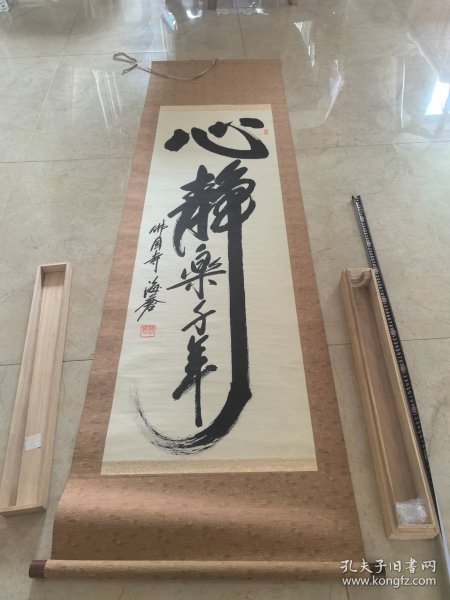 心静樂千年
佛月寺 海春
孔夫子旧书网
www.kongfz.com